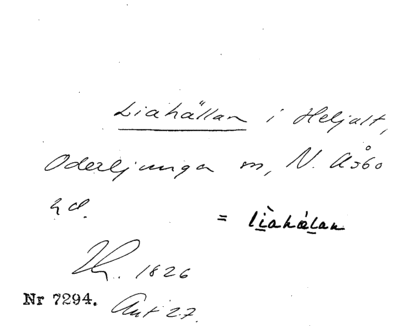 Liahällan i Heljalt,
Oderljunga sn, N. Åsbo
hd.
= lìahælan
1826
Nr 7294.
Ant 27.